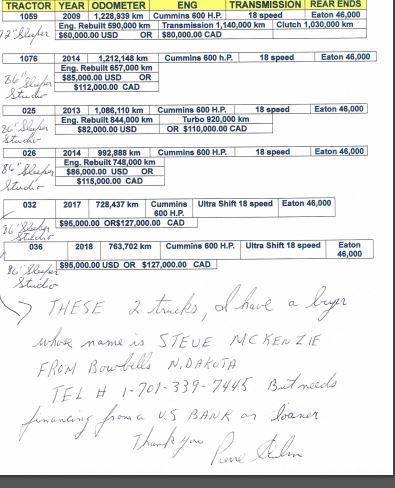 TRACTOR YEAR ODOMETER ENG TRANSMISSION REAR ENDS
1059 2009 1,228,939 km Cummins 600 H.P. 18 speed Eaton 46,000
Eng. Rebuilt 590,000 km Transmission 1,140,000 km Clutch 1,030,000 km
72" Sleeper $60,000.00 USD OR $80,000.00 CAD
1076 2014 1,212,148 km Cummins 600 h.P. 18 speed Eaton 46,000
Eng. Rebuilt 657,000 km
86" Sleeper $85,000.00 USD OR
Studio $112,000.00 CAD
025 2013 1,086,110 km Cummins 600 H.P. 18 speed Eaton 46,000
Eng. Rebuilt 844,000 km Turbo 920,000 km
86" Sleeper $82,000.00 USD OR $110,000.00 CAD
Studio
026 2014 992,888 km Cummins 600 H.P. 18 speed Eaton 46,000
Eng. Rebuilt 748,000 km
86" Sleeper $86,000.00 USD OR
Studio $115,000.00 CAD
032 2017 728,437 km Cummins 600 H.P. Ultra Shift 18 speed Eaton 46,000
86" Sleeper $95,000.00 OR$127,000.00 CAD
Studio
036 2018 763,702 km Cummins 600 H.P. Ultra Shift 18 speed Eaton 46,000
86" Sleeper $95,000.00 USD OR $127,000.00 CAD
Studio
THESE 2 trucks, I have a buyer
whose name is STEVE MCKENZIE
FROM Bowbells N.DAKOTA
TEL # 1-701-339-7445 But needs
financing from a U.S BANK or loaner
Thank you Pierre